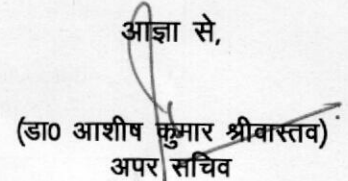 आज्ञा से,
(डा0 आशीष कुमार श्रीवास्तव)
अपर सचिव